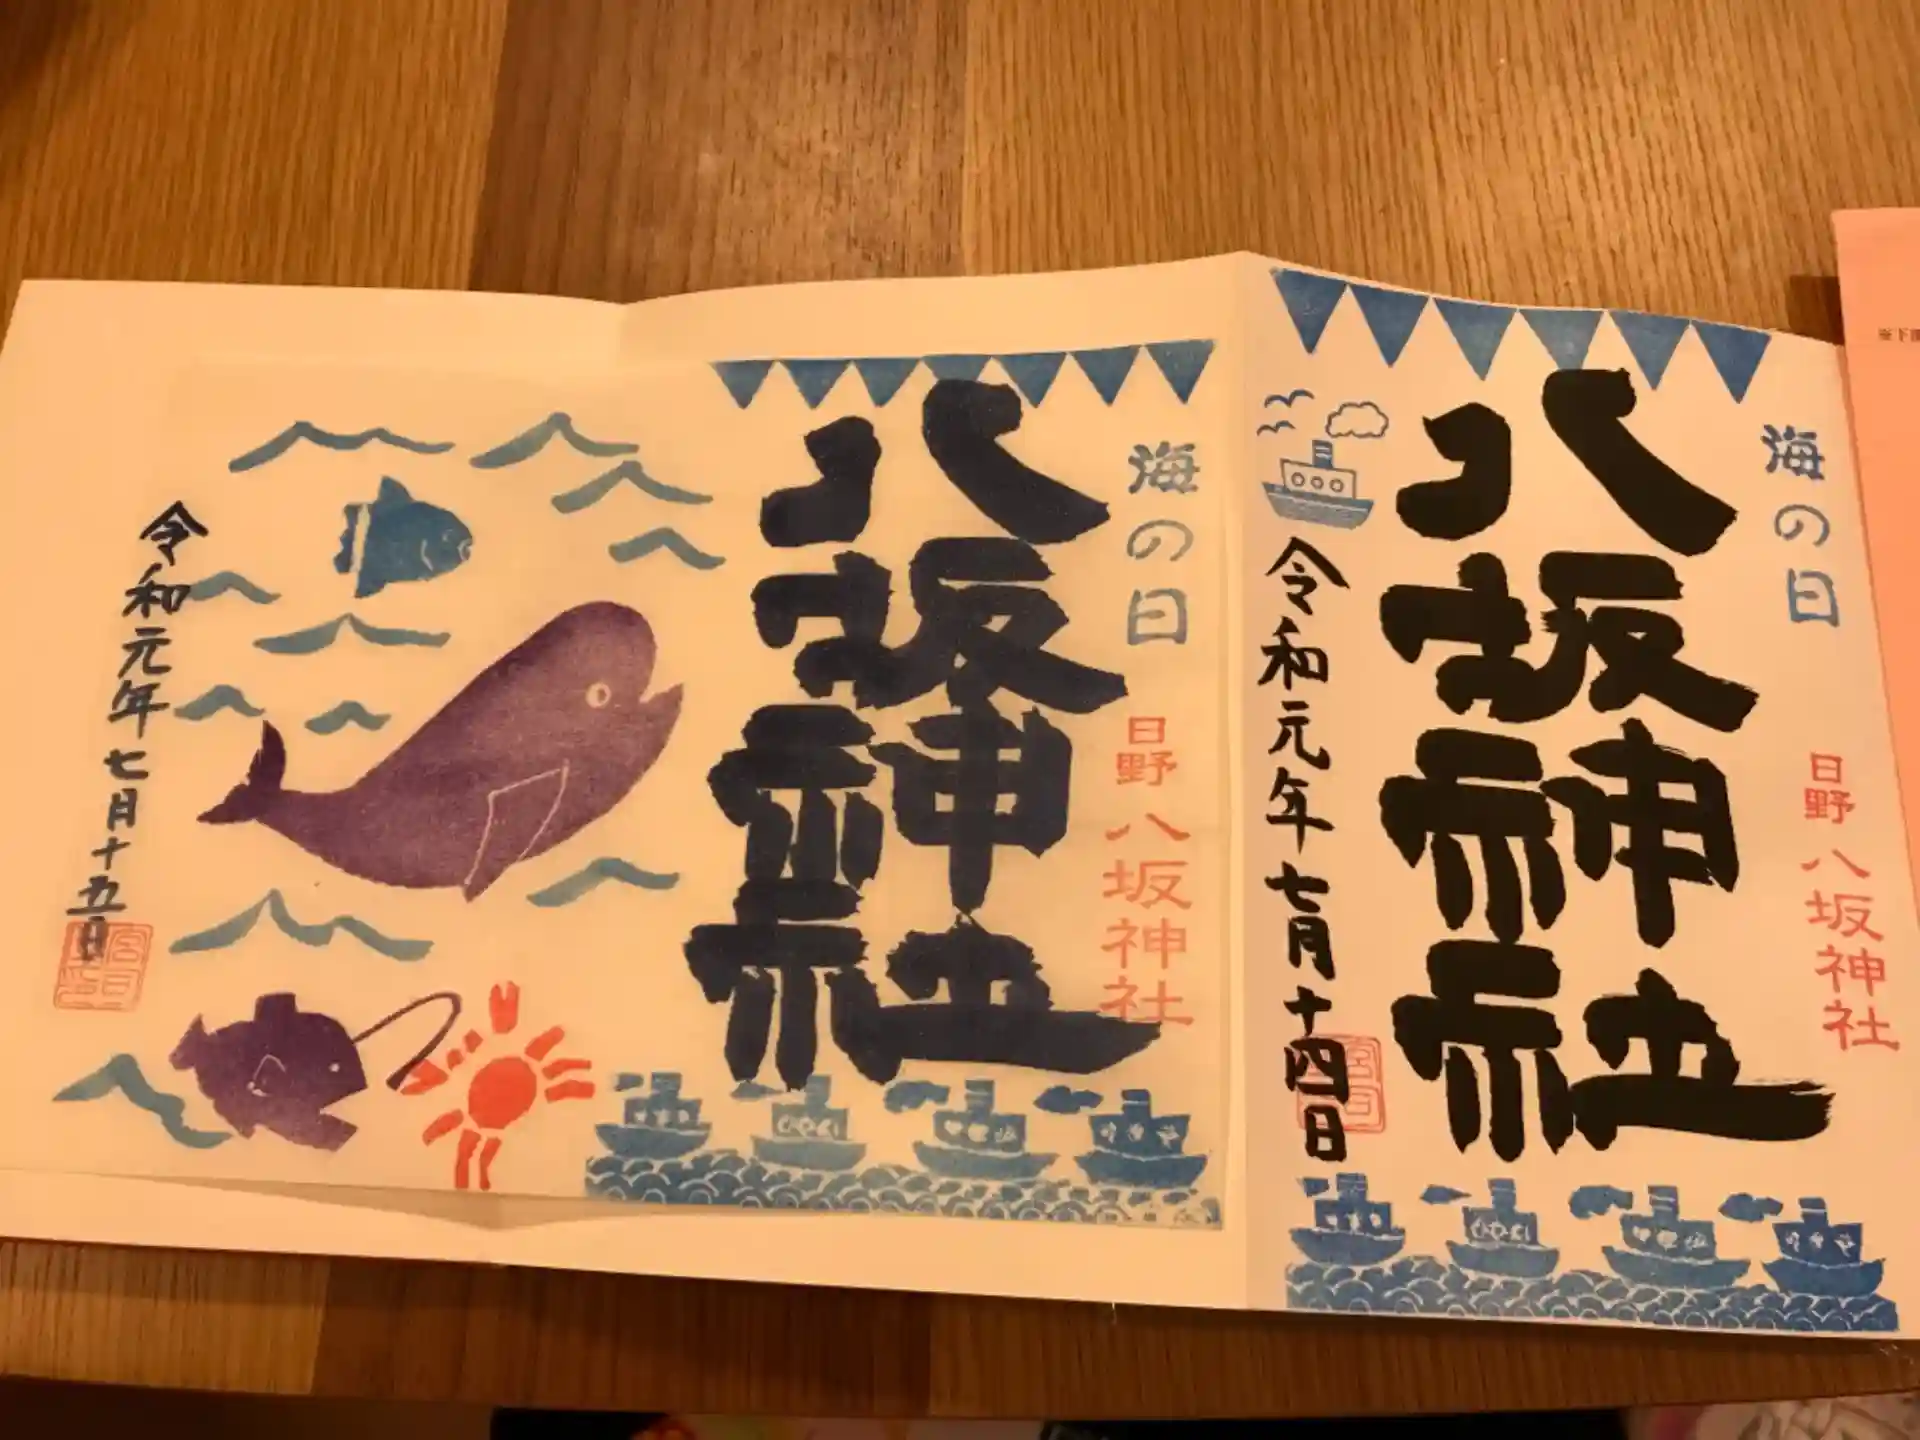 海の日
日野八坂神社
八坂神社
令和元年七月十四日
海の日
日野八坂神社
八坂神社
令和元年七月十五日